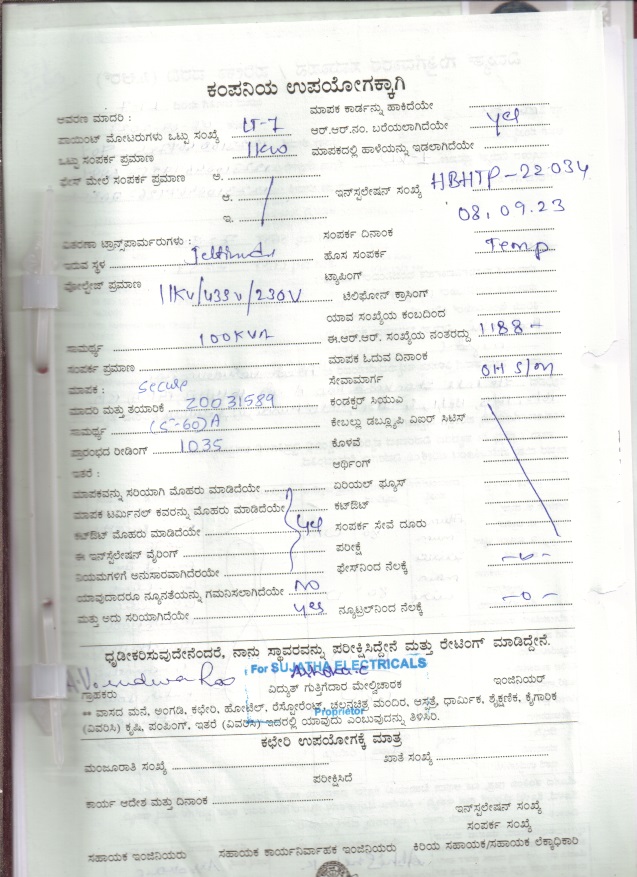 ಕಂಪನಿಯ ಉಪಯೋಗಕ್ಕಾಗಿ
ಆವರಣ ಮಾದರಿ : ಮಾಪಕ ಕಾರ್ಡನ್ನು ಹಾಕಿದೆಯೇ
ಪಾಯಿಂಟ್ ಮೋಟರುಗಳು ಒಟ್ಟು ಸಂಖ್ಯೆ LT-7 ಆರ್.ಆರ್.ನಂ. ಬರೆಯಲಾಗಿದೆಯೇ yes
ಒಟ್ಟು ಸಂಪರ್ಕ ಪ್ರಮಾಣ 11KW ಮಾಪಕದಲ್ಲಿ ಹಾಳೆಯನ್ನು ಇಡಲಾಗಿದೆಯೇ
ಫೇಸ್ ಮೇಲೆ ಸಂಪರ್ಕ ಪ್ರಮಾಣ ಅ.
ಆ. ಇನ್‌ಸ್ಟಲೇಷನ್ ಸಂಖ್ಯೆ HBHTP-22034
ಇ. 08.09.23
ವಿತರಣಾ ಟ್ರಾನ್ಸ್‌ಪಾರ್ಮರುಗಳು : ಸಂಪರ್ಕ ದಿನಾಂಕ
ಇರುವ ಸ್ಥಳ ಹೊಸ ಸಂಪರ್ಕ Temp
ಟ್ಯಾಪಿಂಗ್
ವೋಲ್ಟೇಜ್ ಪ್ರಮಾಣ 11KV/433V/230V ಟೆಲಿಫೋನ್ ಕ್ರಾಸಿಂಗ್
ಯಾವ ಸಂಖ್ಯೆಯ ಕಂಬದಿಂದ
ಸಾಮರ್ಥ್ಯ 100KVA ಈ.ಆರ್.ಆರ್. ಸಂಖ್ಯೆಯ ನಂತರದ್ದು 1188 -
ಸಂಪರ್ಕ ಪ್ರಮಾಣ ಮಾಪಕ ಓದುವ ದಿನಾಂಕ
ಮಾಪಕ : Secure ಸೇವಾಮಾರ್ಗ OH S/M
ಮಾದರಿ ಮತ್ತು ತಯಾರಿಕೆ 20031589 ಕಂಡಕ್ಟರ್ ಸಿಯುವಿ
ಸಾಮರ್ಥ್ಯ (5-60)A ಕೇಬಲ್ಲು ಡಬ್ಲ್ಯೂಪಿ ವಿಐರ್ ಸಿಟಿಸ್
ಪ್ರಾರಂಭದ ರೀಡಿಂಗ್ 1035 ಕೊಳವೆ
ಇತರೆ : ಆರ್ಥಿಂಗ್
ಮಾಪಕವನ್ನು ಸರಿಯಾಗಿ ಮೊಹರು ಮಾಡಿದೆಯೇ ಏರಿಯಲ್ ಫ್ಯೂಸ್
ಮಾಪಕ ಟರ್ಮಿನಲ್ ಕವರನ್ನು ಮೊಹರು ಮಾಡಿದೆಯೇ ಕಟ್‌ಔಟ್
ಕಟ್‌ಔಟ್ ಮೊಹರು ಮಾಡಿದೆಯೇ yes ಸಂಪರ್ಕ ಸೇವೆ ದೂರು
ಈ ಇನ್‌ಸ್ಟೆಲೇಷನ್ ವೈರಿಂಗ್ ಪರೀಕ್ಷೆ
ನಿಯಮಗಳಿಗೆ ಅನುಸಾರವಾಗಿದೆರೆಯೇ ಫೇಸ್‌ನಿಂದ ನೆಲಕ್ಕೆ -0-
ಯಾವುದಾದರೂ ನ್ಯೂನತೆಯನ್ನು ಗಮನಿಸಲಾಗಿದೆಯೇ NO
ಮತ್ತು ಅದು ಸರಿಯಾಗಿದೆಯೇ yes ನ್ಯೂಟ್ರಲ್‌ನಿಂದ ನೆಲಕ್ಕೆ -0-
ಧೃಡೀಕರಿಸುವುದೇನೆಂದರೆ, ನಾನು ಸ್ಥಾವರವನ್ನು ಪರೀಕ್ಷಿಸಿದ್ದೇನೆ ಮತ್ತು ರೇಟಿಂಗ್ ಮಾಡಿದ್ದೇನೆ.
For SUJATHA ELECTRICALS
ಗ್ರಾಹಕರು ವಿದ್ಯುತ್ ಗುತ್ತಿಗೆದಾರ ಮೇಲ್ವಿಚಾರಕ ಇಂಜಿನಿಯರ್
** ವಾಸದ ಮನೆ, ಅಂಗಡಿ, ಕಛೇರಿ, ಹೋಟೆಲ್, ರೆಸ್ಟೋರೆಂಟ್, ಚಲನಚಿತ್ರ ಮಂದಿರ, ಆಸ್ಪತ್ರೆ, ಧಾರ್ಮಿಕ, ಶೈಕ್ಷಣಿಕ, ಕೈಗಾರಿಕ
Proprietor
(ವಿವರಿಸಿ) ಕೃಷಿ, ಪಂಪಿಂಗ್, ಇತರೆ (ವಿವರಿಸಿ) ಇದರಲ್ಲಿ ಯಾವುದು ಎಂಬುವದನ್ನು ತಿಳಿಸಿರಿ.
ಕಛೇರಿ ಉಪಯೋಗಕ್ಕೆ ಮಾತ್ರ
ಮಂಜೂರಾತಿ ಸಂಖ್ಯೆ ಖಾತೆ ಸಂಖ್ಯೆ
ಪರೀಕ್ಷಿಸಿದೆ
ಕಾರ್ಯ ಆದೇಶ ಮತ್ತು ದಿನಾಂಕ
ಇನ್‌ಸ್ಟಲೇಷನ್ ಸಂಖ್ಯೆ
ಸಂಪರ್ಕ ಸಂಖ್ಯೆ
ಸಹಾಯಕ ಇಂಜಿನಿಯರು ಸಹಾಯಕ ಕಾರ್ಯನಿರ್ವಾಹಕ ಇಂಜಿನಿಯರು ಕಿರಿಯ ಸಹಾಯಕ/ಸಹಾಯಕ ಲೆಕ್ಕಾಧಿಕಾರಿ